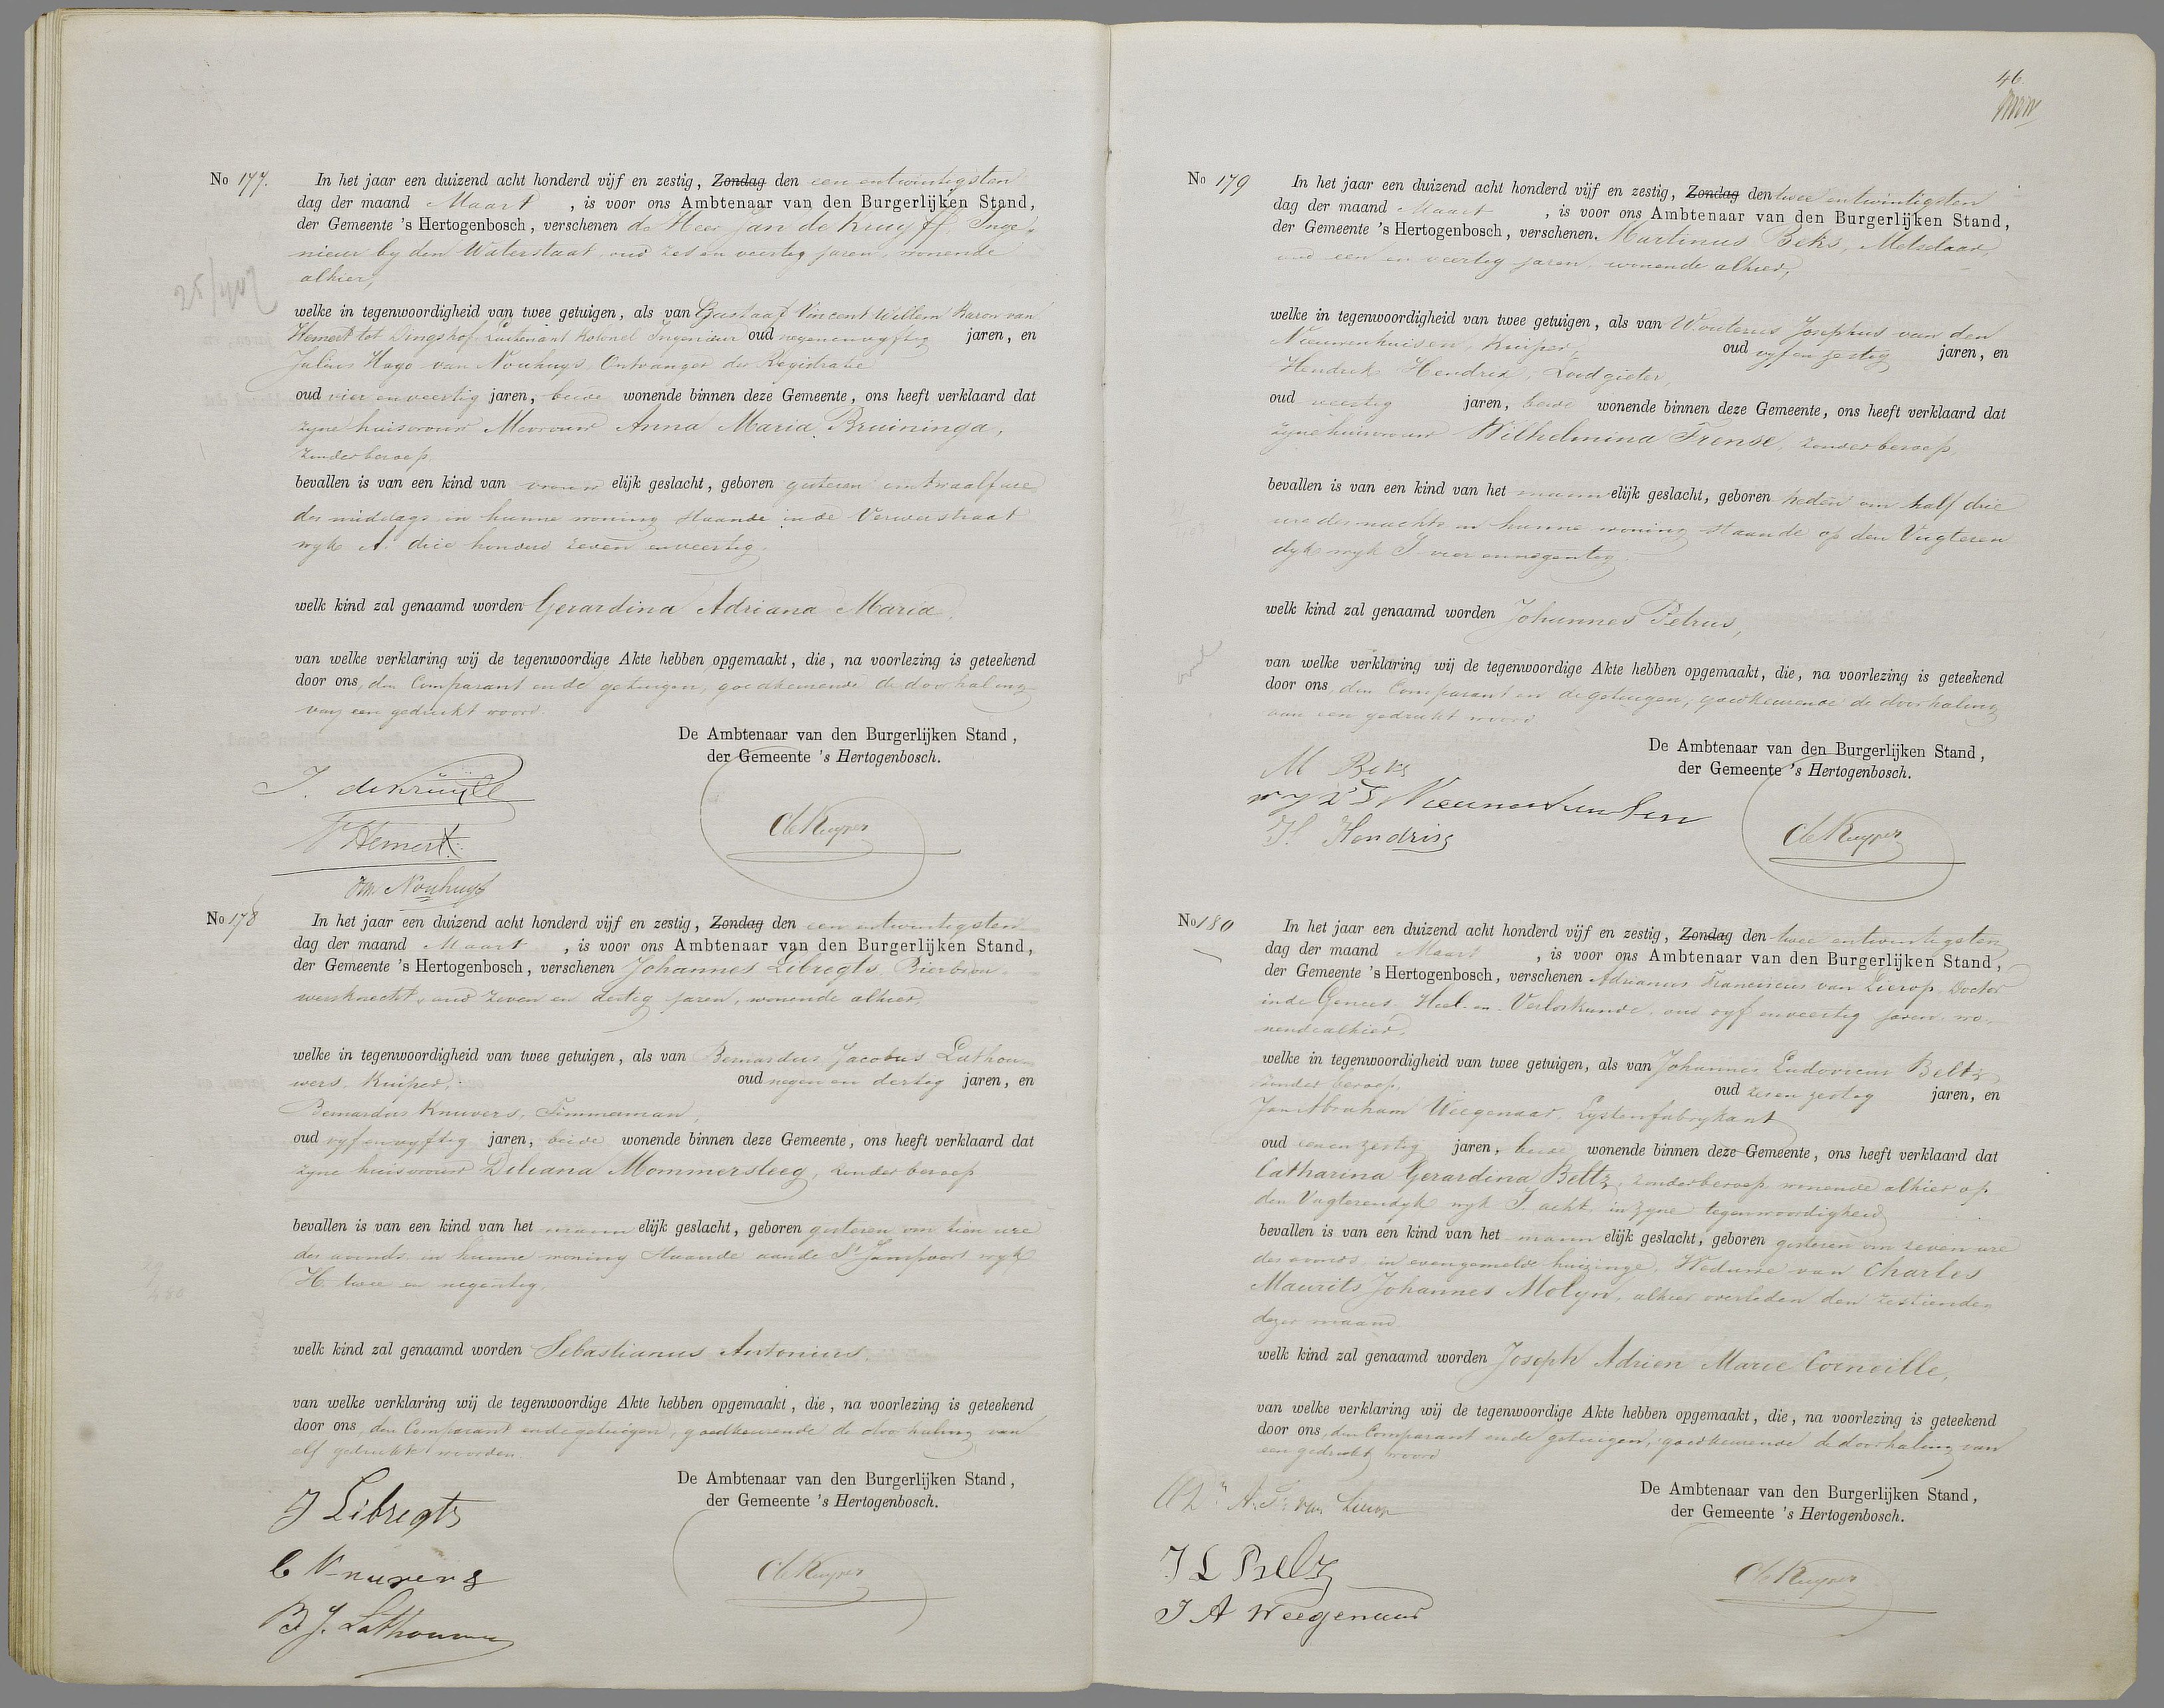 No 177. In het jaar een duizend acht honderd vijf en zestig, Zondag den een entwintigsten
dag der maand Maart , is voor ons Ambtenaar van den Burgerlijken Stand,
der Gemeente 's Hertogenbosch, verschenen de Heer Jan de Kruyff, Inge-
nieur by den Waterstaat, oud zes en veertig jaren, wonende
alhier,
welke in tegenwoordigheid van twee getuigen, als van Gustaaf Vincent Willem Baron van
Hemert tot Dingshof Luitenant Kolonel Ingenieur oud negenenvyftig jaren, en
Julius Hugo van Nouhuys, Ontvanger der Registratie
oud vier enveertig jaren, beide wonende binnen deze Gemeente, ons heeft verklaard dat
zyne huisvrouw Mevrouw Anna Maria Bruininga,
zonder beroep,
bevallen is van een kind van vrouw elijk geslacht, geboren gisteren om twaalf ure
des middags in hunne woning staande inde Verwerstraat
wyk A. drie honderd zeven enveertig.
welk kind zal genaamd worden Gerardina Adriana Maria,
van welke verklaring wij de tegenwoordige Akte hebben opgemaakt, die, na voorlezing is geteekend
door ons, den Comparant ende getuigen, goedkeurende de doorhaling
van een gedrukt woord.
De Ambtenaar van den Burgerlijken Stand,
der Gemeente 's Hertogenbosch.
J. de Kruijff
Hemert
Nouhuys
de Kuyper
No 178 In het jaar een duizend acht honderd vijf en zestig, Zondag den een entwintigsten
dag der maand Maart , is voor ons Ambtenaar van den Burgerlijken Stand,
der Gemeente 's Hertogenbosch, verschenen Johannes Libregts, Bierbrou-
wersknecht, oud zeven en dertig jaren, wonende alhier,
welke in tegenwoordigheid van twee getuigen, als van Bernardus Jacobus Lathou-
wers, Kuiper, oud negen en dertig jaren, en
Bernardus Knuvers, Timmerman,
oud vyfenvyftig jaren, beide wonende binnen deze Gemeente, ons heeft verklaard dat
zyne huisvrouw Diliana Mommersteeg, zonder beroep
bevallen is van een kind van het mann elijk geslacht, geboren gisteren om tien ure
des avonds, in hunne woning staande aande St Jampoort wyk
H. twee en negentig.
welk kind zal genaamd worden Sebastianus Antonius.
van welke verklaring wij de tegenwoordige Akte hebben opgemaakt, die, na voorlezing is geteekend
door ons, den Comparant ende getuigen, goedkeurende de doorhaling van
elf gedrukte woorden.
De Ambtenaar van den Burgerlijken Stand,
der Gemeente 's Hertogenbosch.
J Libregts
Knuvers
B. J. Lathouwers
de Kuyper
46
No 179 In het jaar een duizend acht honderd vijf en zestig, Zondag den twee entwintigsten
dag der maand Maart , is voor ons Ambtenaar van den Burgerlijken Stand,
der Gemeente 's Hertogenbosch, verschenen. Martinus Beks, Metselaar,
oud een en veertig jaren wonende alhier,
welke in tegenwoordigheid van twee getuigen, als van Wouterus Josephus van den
Nieuwenhuisen, Kuiper, oud vyfenzestig jaren, en
Hendrik Hendrix, Loodgieter,
oud veertig jaren, beide wonende binnen deze Gemeente, ons heeft verklaard dat
zyne huisvrouw Wilhelmina Frense, zonder beroep,
bevallen is van een kind van het mann elijk geslacht, geboren heden om half drie
ure des nachts in hunne woning staande op den Vugteren
dyk wyk J vier ennegentig.
welk kind zal genaamd worden Johannes Petrus,
van welke verklaring wij de tegenwoordige Akte hebben opgemaakt, die, na voorlezing is geteekend
door ons, den Comparant en de getuigen, goedkeurende de doorhaling
van een gedrukt woord
De Ambtenaar van den Burgerlijken Stand,
der Gemeente 's Hertogenbosch.
M Beks
Nieuwenhuisen
H. Hendrix
de Kuyper
No 180 In het jaar een duizend acht honderd vijf en zestig, Zondag den twee entwintigsten
dag der maand Maart , is voor ons Ambtenaar van den Burgerlijken Stand,
der Gemeente 's Hertogenbosch, verschenen Adrianus Franciscus van Lierop, Doctor
inde Genees- Heel- en Verloskunde, oud vyf enveertig jaren, wo-
nende alhier,
welke in tegenwoordigheid van twee getuigen, als van Johannes Ludovicus Beltz,
zonder beroep, oud zesenzestig jaren, en
Jan Abraham Weegenaar, Lystenfabrykant
oud eenenzestig jaren, beide wonende binnen deze Gemeente, ons heeft verklaard dat
Catharina Gerardina Beltz, zonder beroep, wonende alhier op
den Vugterendyk wyk J. acht, in zyne tegenwoordigheid
bevallen is van een kind van het mann elijk geslacht, geboren gisteren om zeven ure
des avonds, in evengemelde huizinge, Weduwe van Charles
Maurits Johannes Molyn, alhier overleden den zestienden
dezer maand.
welk kind zal genaamd worden Joseph Adrien Marie Corneille,
van welke verklaring wij de tegenwoordige Akte hebben opgemaakt, die, na voorlezing is geteekend
door ons, den Comparant ende getuigen, goedkeurende de doorhaling van
een gedrukt woord
De Ambtenaar van den Burgerlijken Stand,
der Gemeente 's Hertogenbosch.
A. F. van Lierop
J L Beltz
J A Weegenaar
de Kuyper